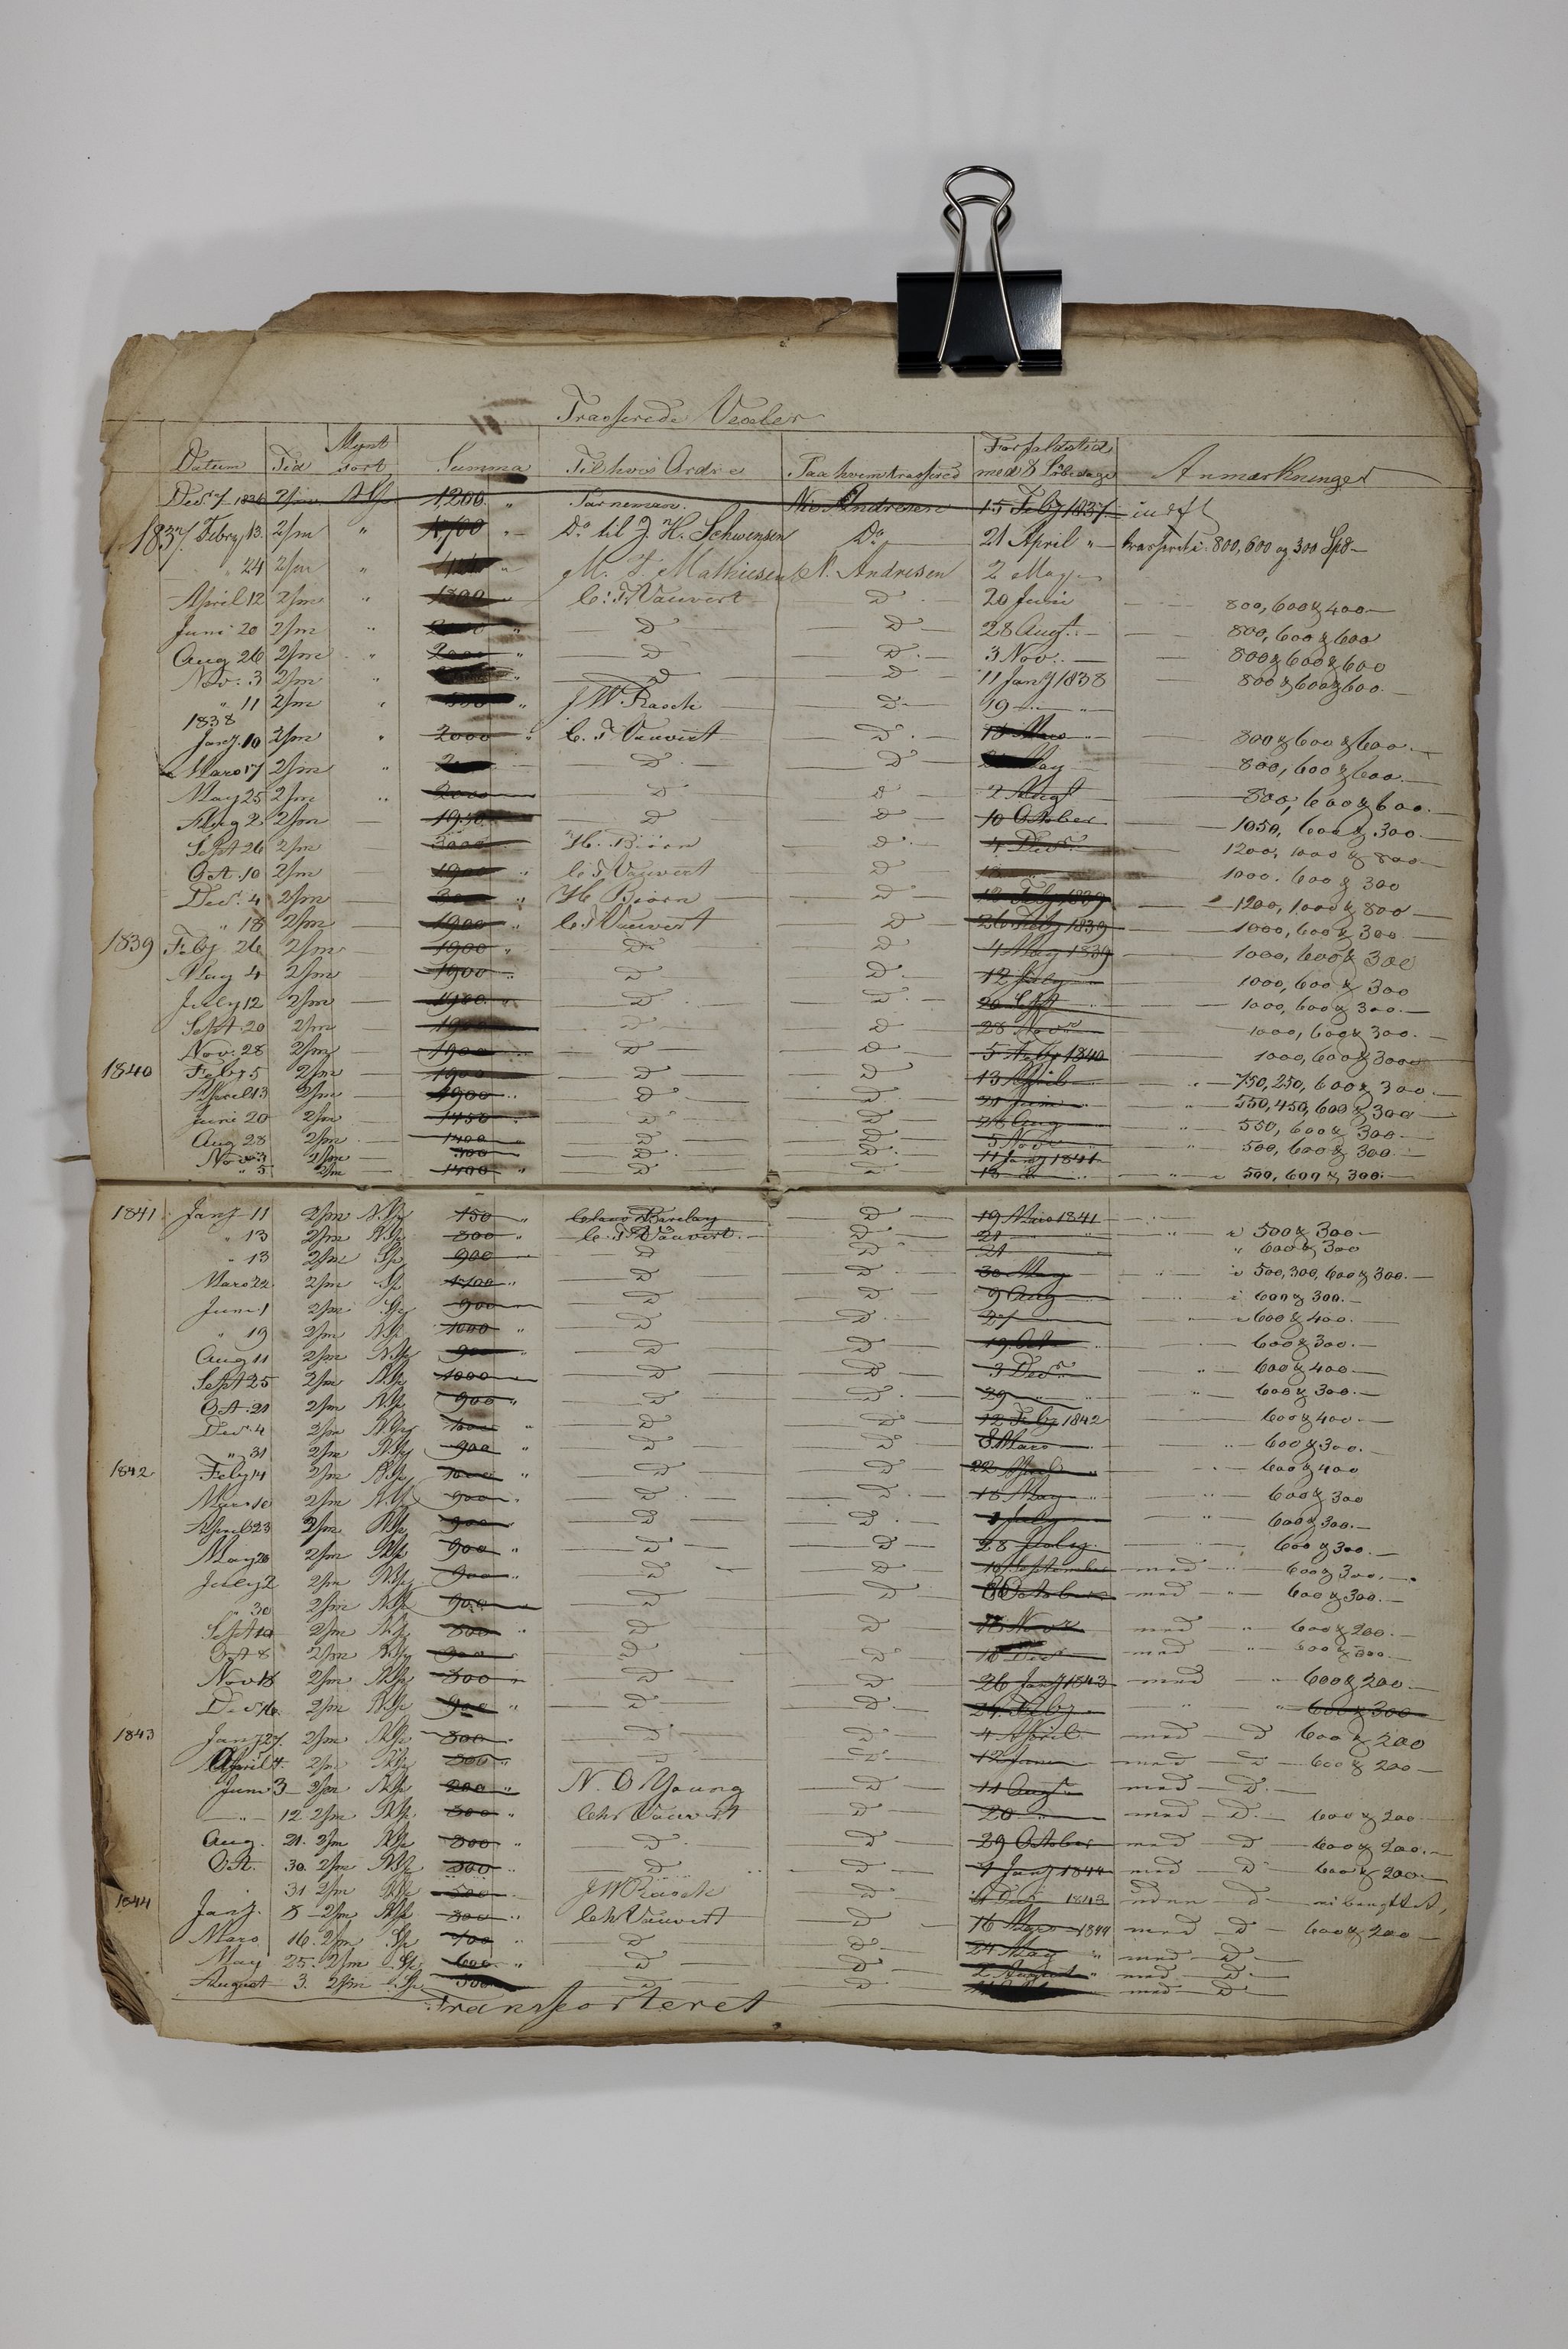 Trasserede Vexler
Datum Tid Mynt sort Summa Til hvis Ordre Paa hvem trasseret Forfaldstid med 8 Løbedage Anmærkninger
Decr 7 1836 2/m NSp 1200 " Tørneman Ns Andresen 15 Feby 1837 indf
1837 Febry 13 2/m " 1700 " Do til J. H. Schwensen Do 21 April " trasseret i 800, 600 og 300 Spd
" 24 2/m " M. Mathiesen N. Andresen 2 May
April 12 2/m " 1800 " C. F. Vauvert D 20 Juni 800, 600 & 400
Juni 20 2/m " 2000 " D D 28 Augt 800, 600 & 600
Aug 26 2/m " 2000 " D D 3 Nov. 800 & 600 & 600
Nov. 3 2/m " " D D 11 Jany 1838 800 & 600 & 600
" 11 2/m " " J W. Rasch D 19
1838
Jany. 10 2/m " 2000 " C. F. Vauvert D 18 Mars 800 & 600 & 600
Mars 17 2/m " D D May 800, 600 & 600
May 25 2/m " 2000 D D 2 Augt 800, 600 & 600
Aug 2 2/m 1950 D D 10 October 1050, 600 & 300
Sept 26 2/m 3000 H. Biørn D 4 Decr 1200, 1000 & 800
Oct. 10 2/m 1900 " C. F. Vauvert D 18 1000, 600 & 300
Decr. 4 2/m 3000 " H Biørn D 12 Feby 1839 1200, 1000 & 800
" 18 2/m 1900 " C. F. Vauvert D 26 Feby 1839 1000, 600 & 300
1839 Feby 26 2/m 1900 " D D 4 May 1839 1000, 600 & 300
May 4 2/m 1900 " D D 12 July 1000, 600 & 300
July 12 2/m 1900 " D D 20 Sept 1000, 600 & 300
Sept. 20 2/m 1900 D D 28 Novr 1000, 600 & 300
Nov. 28 2/m 1900 D D 5 Feby 1840 1000, 600 & 300
1840 Feby 5 2/m 1900 D D 13 April 750, 250, 600 & 300
April 13 2/m 1900 D D 21 Juni 550, 450, 600 & 300
Juni 20 2/m 1450 D D 28 Aug 550, 600 & 300
Aug 28 2/m 1400 D D 5 Novr 500, 600 & 300
Nov 3 2/m 300 D D 11 Jany 1841
" 5 2/m 1400 D D 13 500, 600 & 300
1841 Jany 11 2/m N.Sp 150 " Barclay D 19 Mars 1841
" 13 2/m NSp 800 " C. F. Vauvert D 21 i 500 & 300
" 13 2/m Sp 900 D D 21 " 600 & 300
Mars 22 2/m Sp 1700 " D D 30 May i 500, 300, 600 & 300
Juni 1 2/m Sp 900 D D 9 Aug i 600 & 300
" 19 2/m N.Sp 1000 " D D 27 600 & 400
Aug 11 2/m N.Sp 900 " D D 19 Oct 600 & 300
Sept 25 2/m N.Sp 1000 D D 3 Decr 600 & 400
Oct. 21 2/m N.Sp 900 " D D 29 600 & 300
Decr. 4 2/m N.Sp 1000 " D D 12 Feby 1842 600 & 400
" 31 2/m N.Sp 900 " D D 8 Mars 600 & 300
1842 Feby 14 2/m N.Sp 1000 " D D 22 April 600 & 400
Mars 10 2/m N.Sp 900 " D D 18 May 600 & 300
April 23 2/m N.Sp 900 D D 1 July 600 & 300
May 20 2/m N.Sp 900 " D D 28 July 600 & 300
July 2 2/m N.Sp 900 D D 10 September med 600 & 300
" 30 2/m N.Sp 900 D D October med " 600 & 300
Sept 10 2/m N.Sp 800 " D D 18 Novr med " 600 & 200
Oct 8 2/m N.Sp 900 D D 16 Decr med " 600 & 300
Nov 18 2/m N.Sp 800 D D 26 Jany 1843 med " 600 & 200
Decr 16 2/m N.Sp 900 " D D 24 Feby " " 600 & 300
1843 Jany 27 2/m N.Sp 800 D D 4 April med D 600 & 200
April 4 2/m N.Sp 800 " D D 12 Juni med D 600 & 200
Juni 3 2/m N.Sp 200 " N. O Young D 11 Augt med D
" 12 2/m N.Sp 800 " Chr Vauvert D 20 med D 600 & 200
Aug. 21 2/m N.Sp 800 " D D 29 October med D 600 & 200
Oct. 30 2/m N.Sp 800 " D D 7 Jany 1844 med D 600 & 200
31 2/m N.Sp 500 J W Rasch D 1843 uden d
1844 Jany. 8 2/m N.Sp 800 " Chr Vauvert D 16 Mars 1844 med D 600 & 200
Mars 16 2/m Sp 700 " D D 24 May " med D
May 25 2/m Sp 600 " D D 2 August " med D
August 3 2/m Sp 500 D D med D
Transporteret